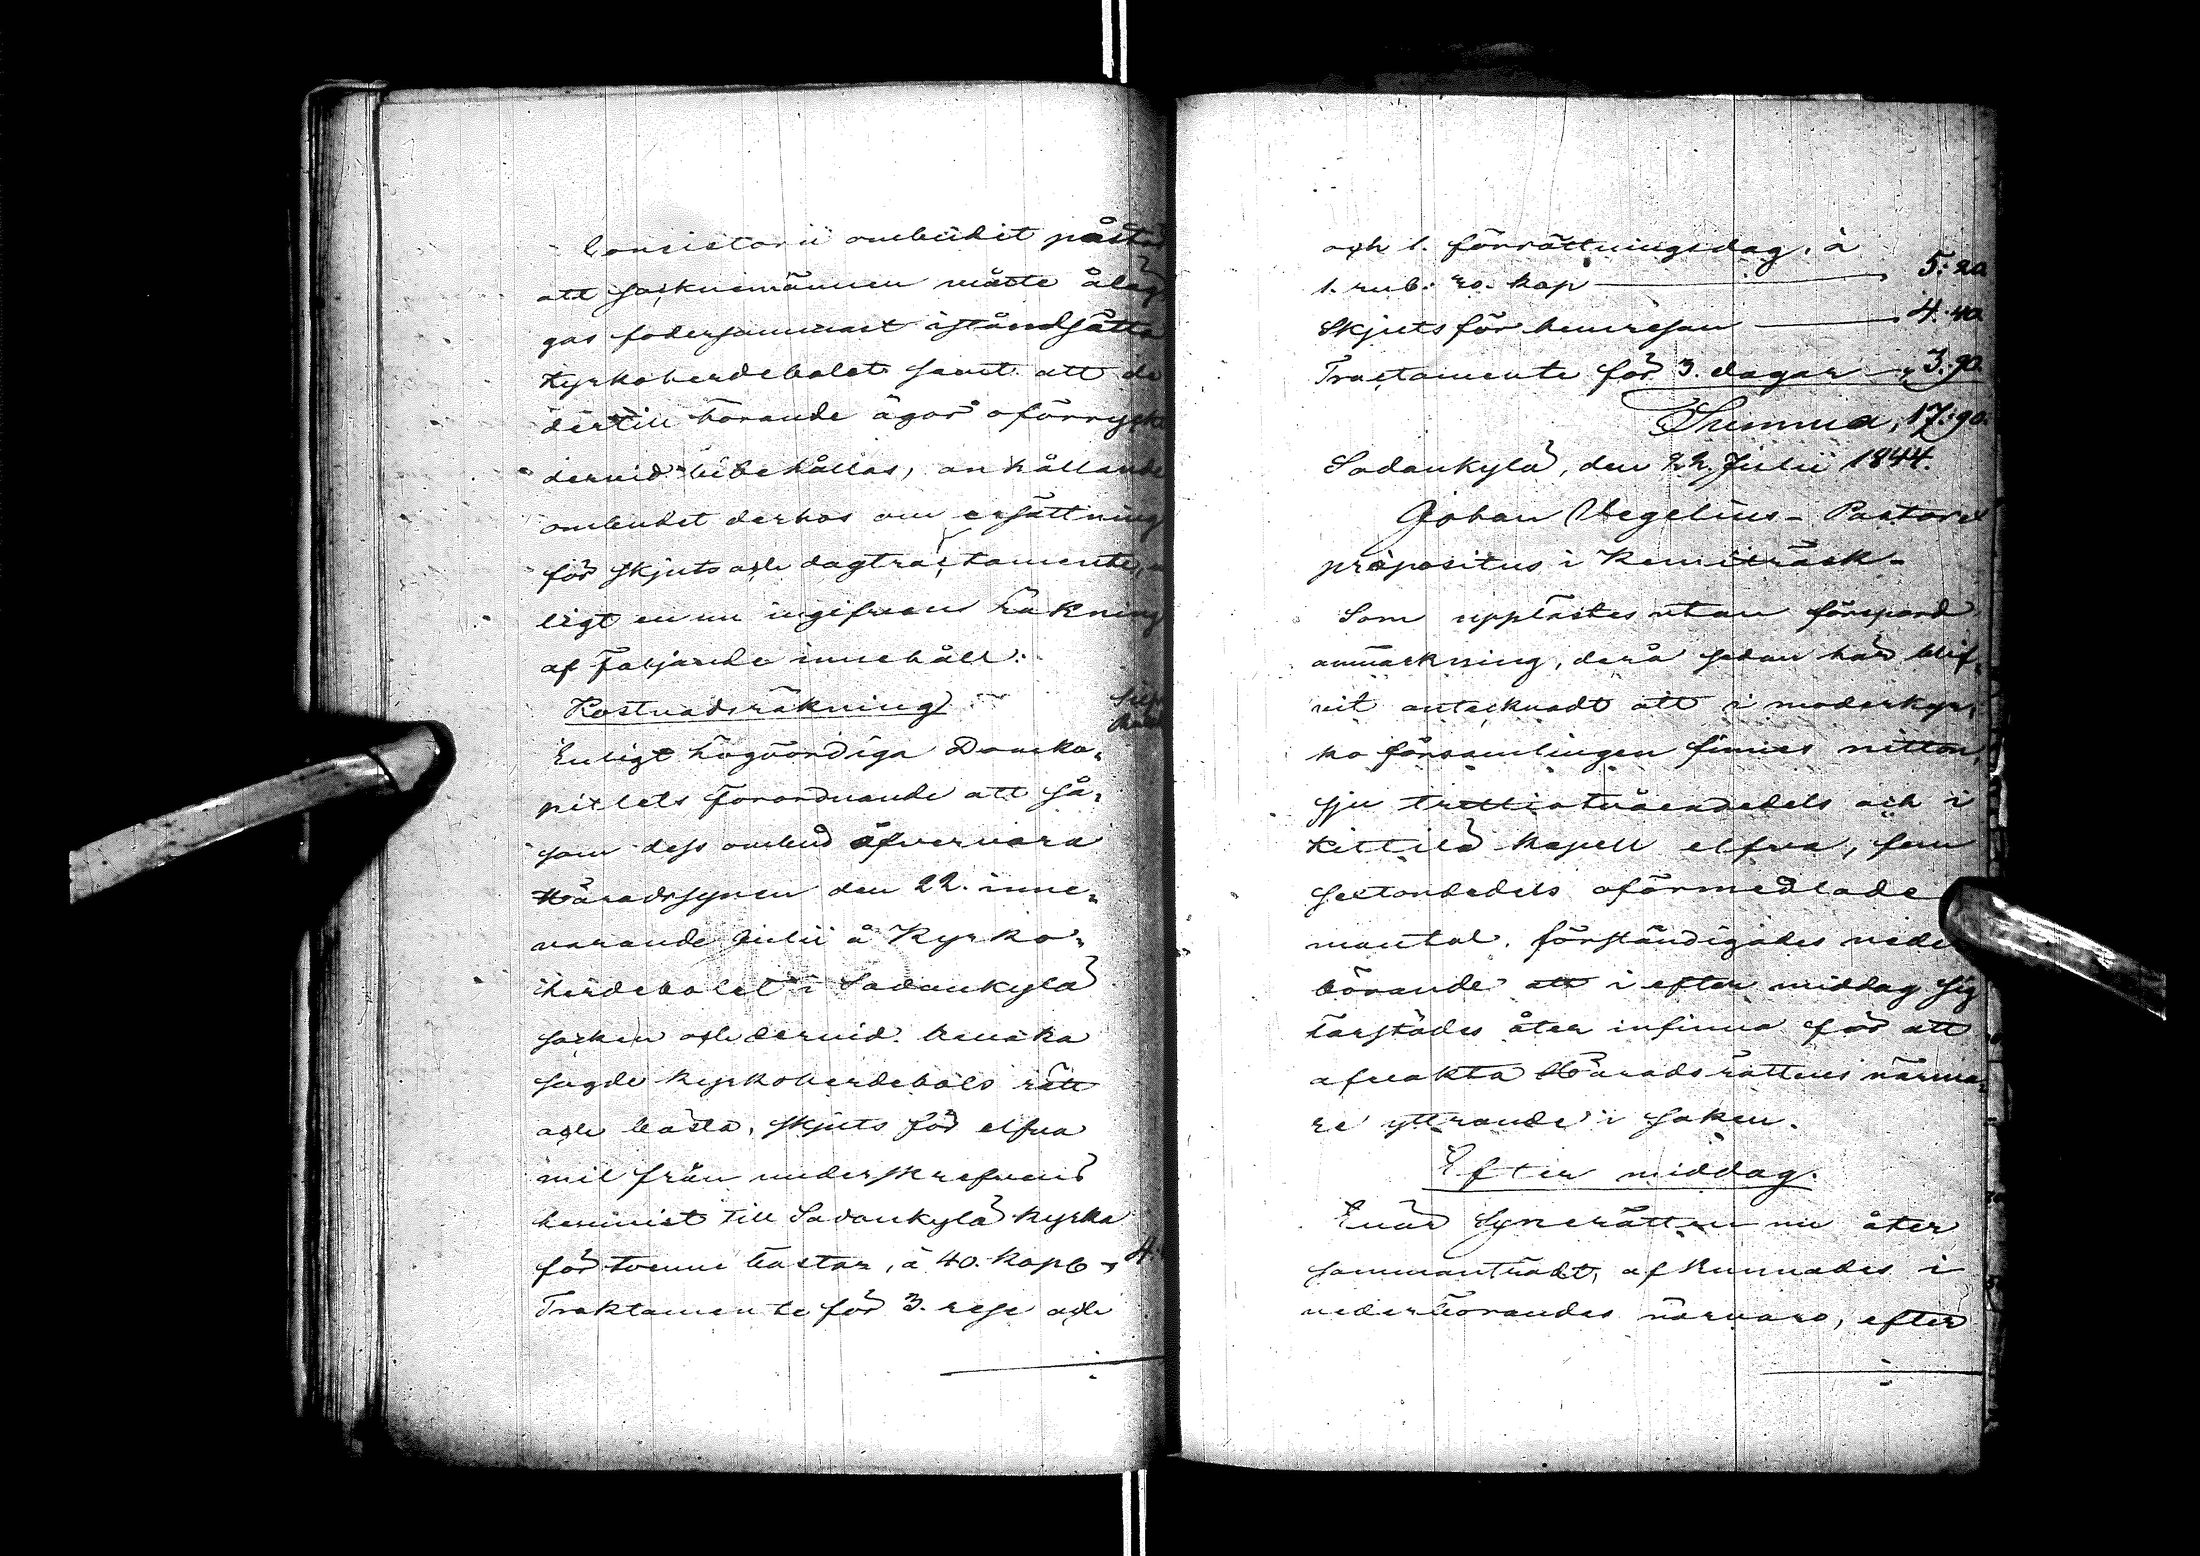 Consistorii ombudet påstod
att socknemännen måtte åläg
gas fodersammast iståndsätta
Kyrkoherdebolet samt att de
dertill hörande ägor oförryckt
dervid bibehållas, anhållande
ombudet derhos om ersättning
för skjuts och dagtractamente,
ligt en nu ingifven räkning
af följande innehåll:
Kostnadsräkning
Enligt högvördiga Domka-
pitlets förordnande att så-
som dess ombud öfvervara
Häradssynen den 22. inne-
varande Julii å Kyrko-
herdebolet i Sodankylä
socken och dervid bevaka
sagde kyrkoherdebols rätt
och bästa, skjuts för elfva
mil från underskrefvens
hemvist till Sodankylä kyrka
för tvenne hästar, à 40. kop 4.
Traktamente för 3. rese och
och 1. förrättningsdag, à
1. rub. 30. kop 5:20
Skjuts för hemresan 4.40
Tractamente för 3. dagar 3.90.
Summa, 17:90.
Sodankylä, den 22. Julii 1844.
Johan Wegelius - Pastor et
præpositus i Kemiträsk -
Som upplästes utan förspord
anmärkning, derå sedan här blif-
vit antecknadt att i moderkyr-
ko församlingen finnes nitton,
sju trettiotvåendedels och i
Kittilä kapell elfva, fem
sextondedels oförmedlade
mantal, förständigades veder
börande att i efter middag sig
härstädes åter infinna för att
afvakta Häradsrättens närma-
re yttrande i saken.
Efter middag.
Enär Synerätten nu åter
sammanträdt, afkunnades i
vederbörandes närvaro, efter